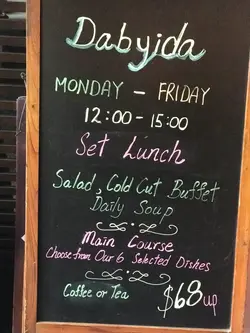 Dabyjda
MONDAY - FRIDAY
12:00 - 15:00
Set Lunch
Salad, Cold Cut Buffet
Daily Soup
Main Course
Choose from Our 6 Selected Dishes
Coffee or Tea
$68 up